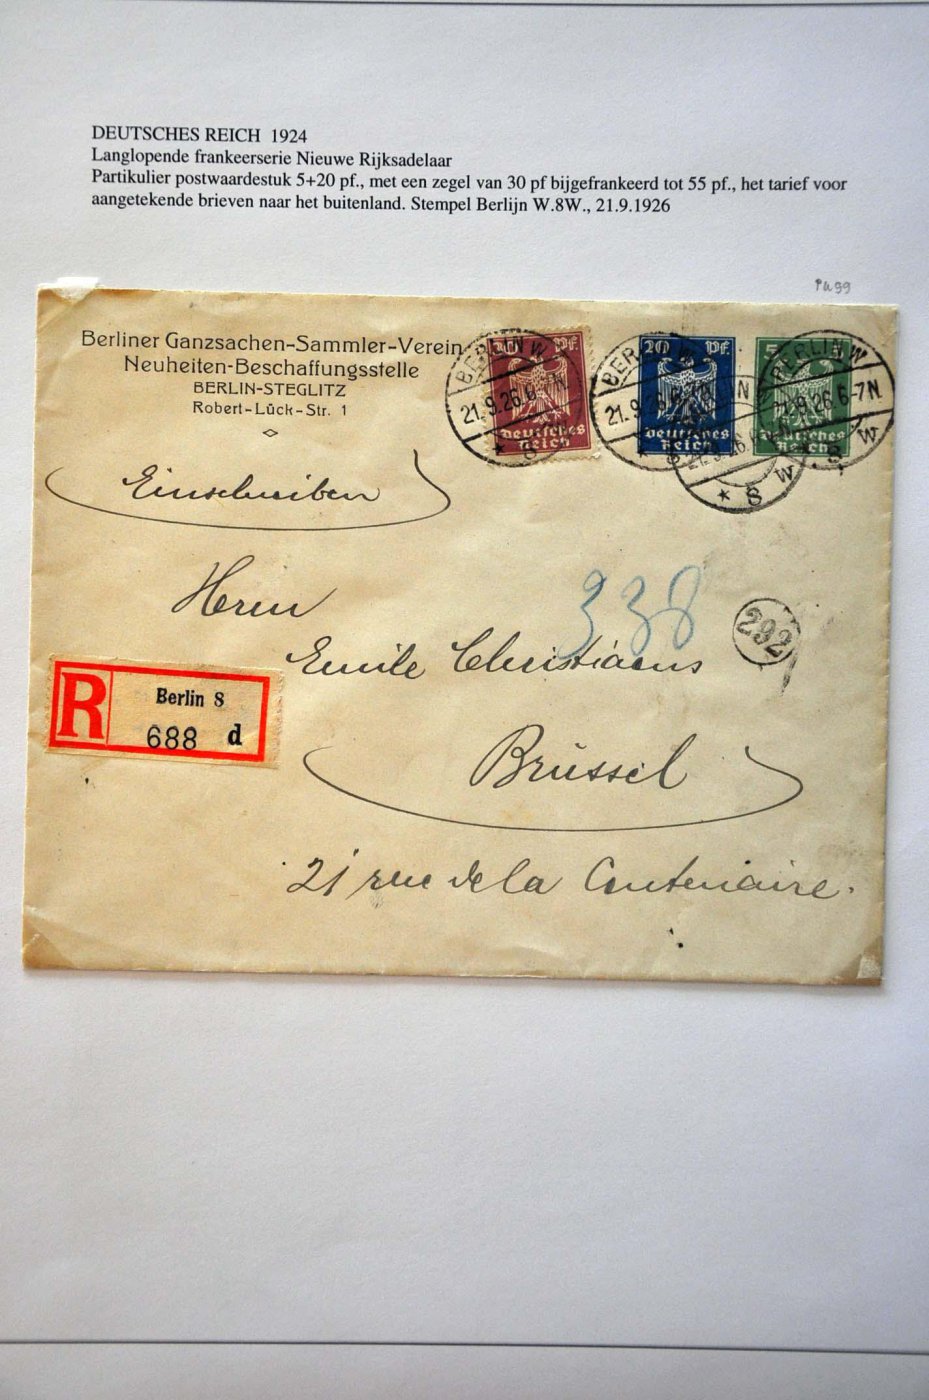 DEUTSCHES REICH 1924
Langlopende frankeerserie Nieuwe Rijksadelaar
Partikulier postwaardestuk 5+20 pf., met een zegel van 30 pf bijgefrankeerd tot 55 pf., het tarief voor
aangetekende brieven naar het buitenland. Stempel Berlijn W.8W., 21.9.1926
Berliner Ganzsachen-Sammler-Verein
Neuheiten-Beschaffungsstelle
BERLIN-STEGLITZ
Robert-Lück-Str. 1
Pf.
Deutsches
Reich
20 Pf.
Deutsches
Reich
5
Deutsches
Reich
BERLIN W
21.9.26.6-7N
* 8
BERLIN W
21.9.26.6-7N
* 8
21.9.26.6
* 8 W
BERLIN W
21.9.26 6-7N.
8 W
Einschreiben
Herrn
338
292
Emile Christiaens
R
Berlin 8
688 d
Brüssel
21 rue de la Centenaire.